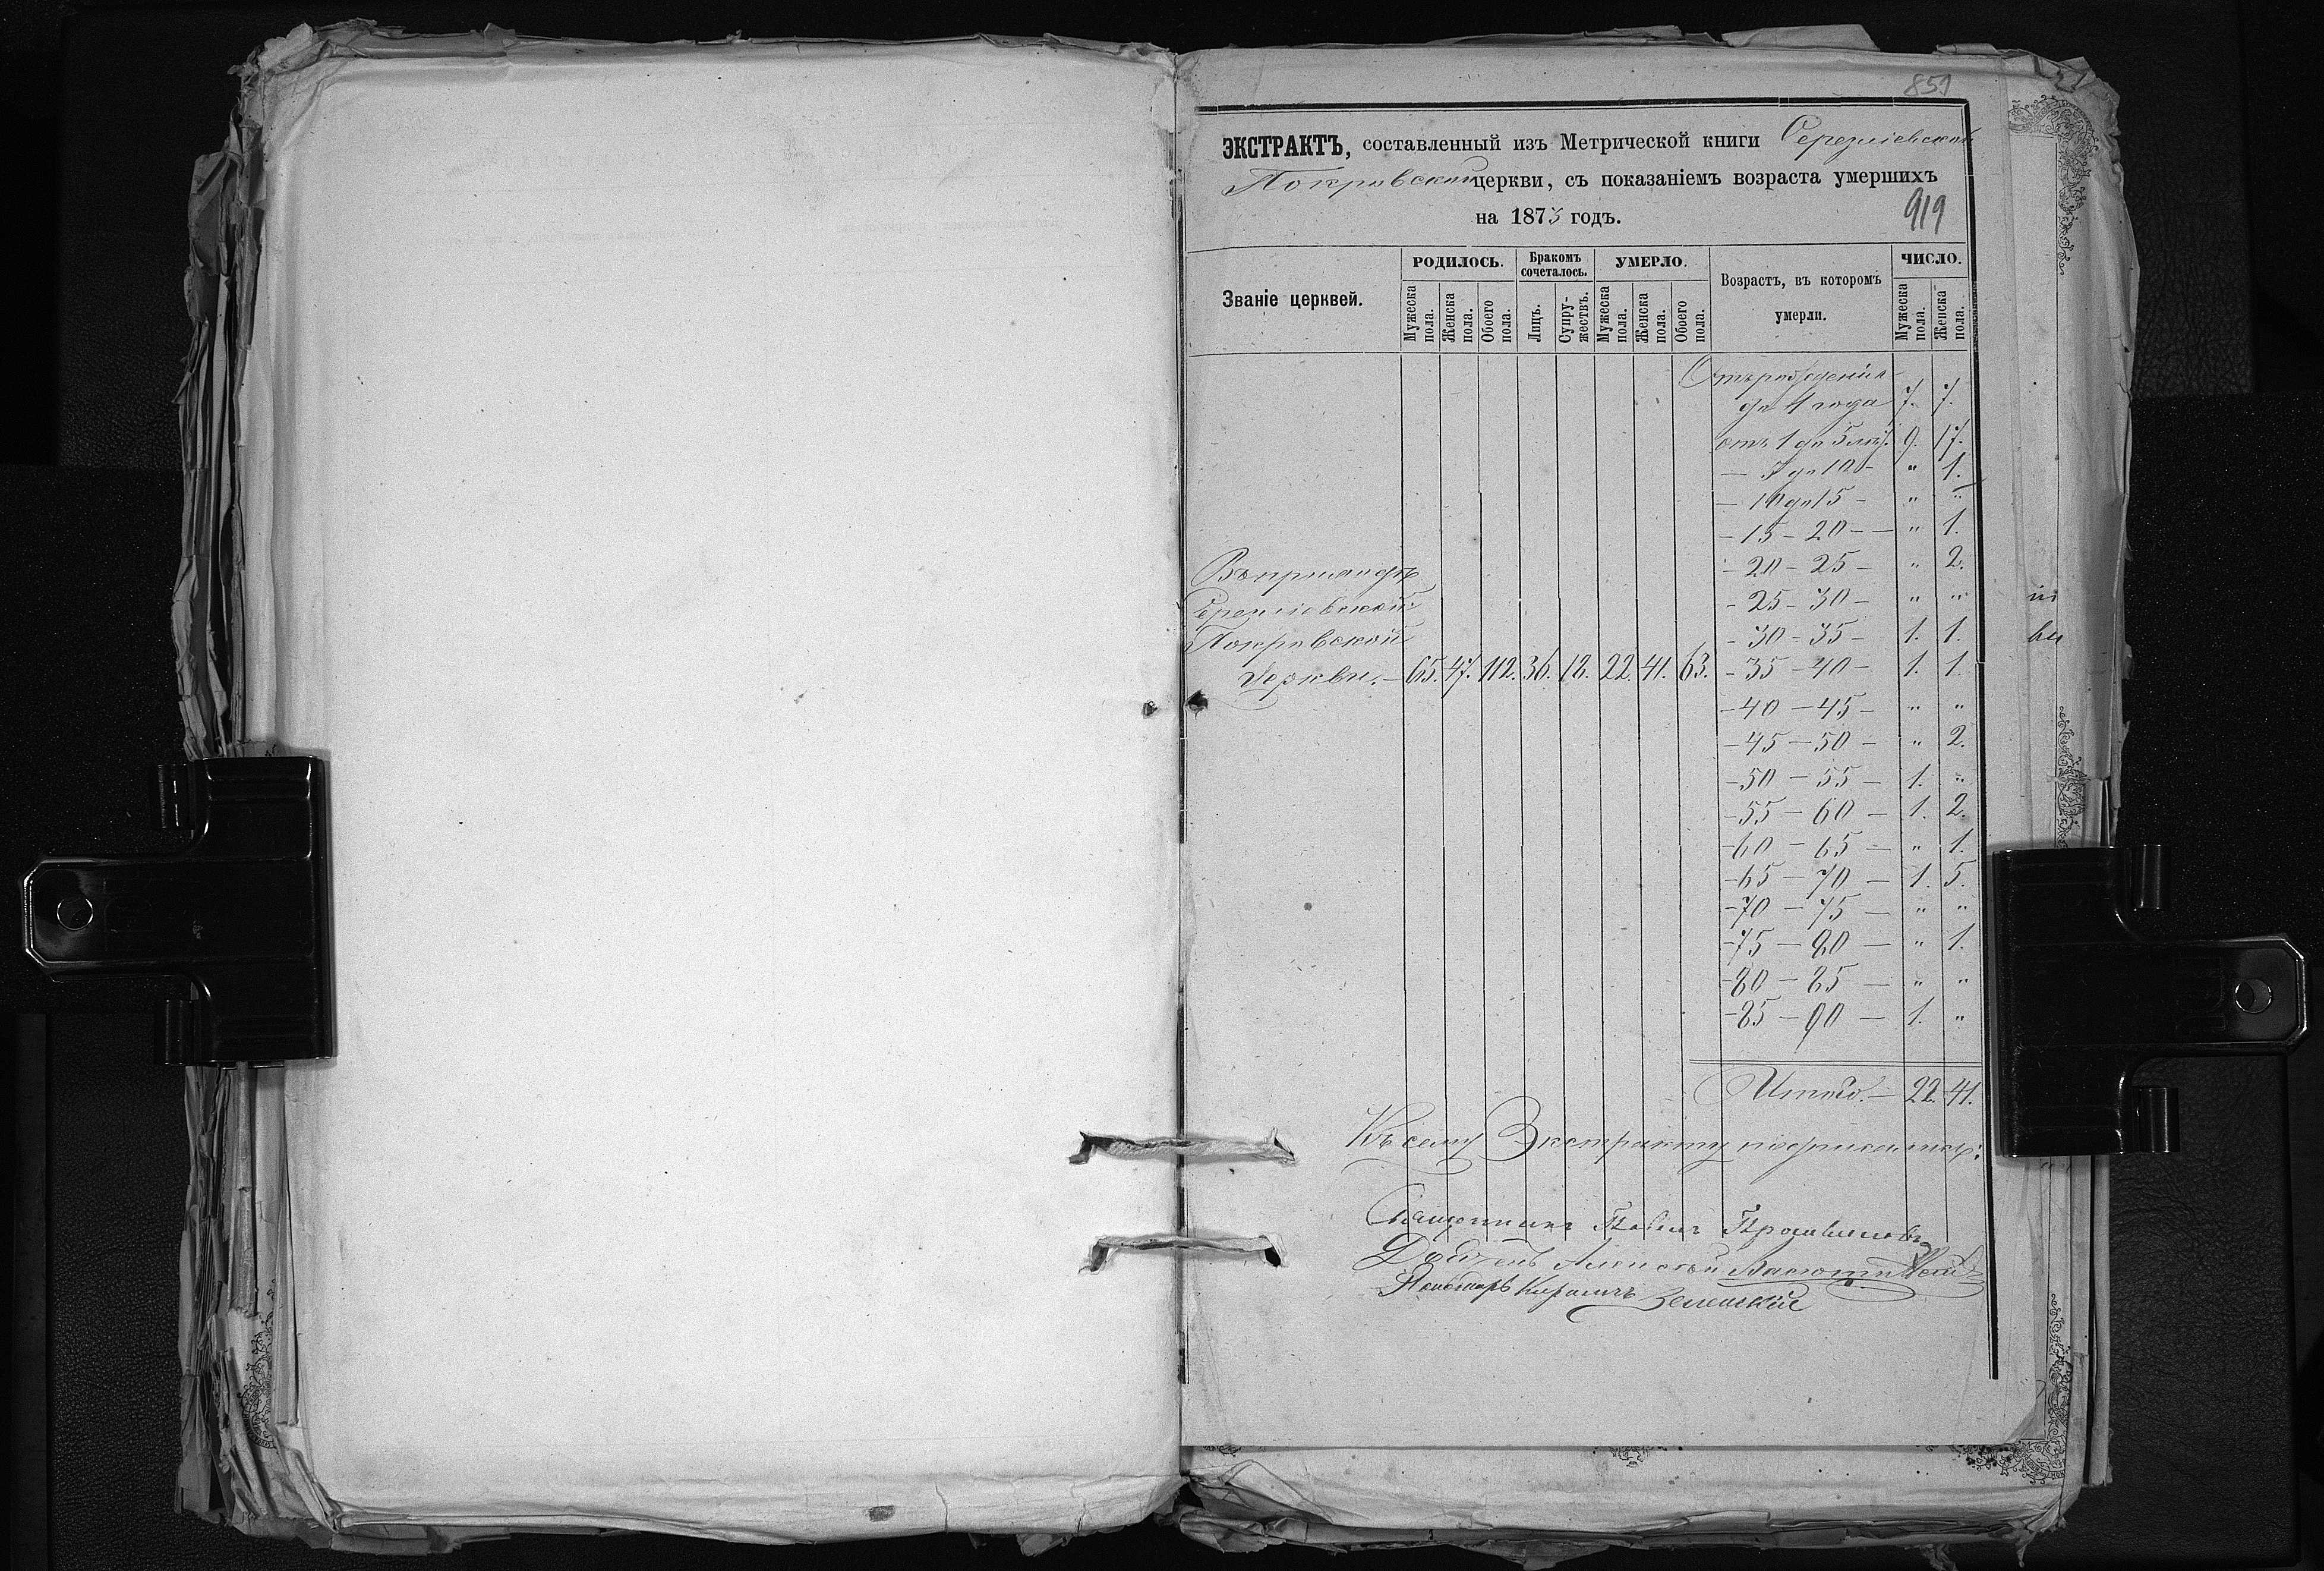 859
ЭКСТРАКТЪ, составленный изъ Метрической книги
Покровской церкви, съ показаніемъ возраста умершихъ
на 1873 годъ.
919
Званіе церквей.
РОДИЛОСЬ.
Мужеска пола.
Женска пола.
Обоего пола.
Бракомъ сочеталось.
Лицъ.
Супружествъ.
УМЕРЛО.
Мужеска пола.
Женска пола.
Обоего пола.
Возрастъ, въ которомъ умерли.
ЧИСЛО.
Мужеска пола.
Женска пола.
Отъ рожденія
до 1 года 7. 7.
отъ 1 до 5 лѣтъ 9. 17.
— 5 до 10 — " 1.
— 10 до 15 — " "
— 15 — 20 — — " 1.
— 20 — 25 — " 2.
— 25 — 30 — " "
— 30 — 35 — 1. 1.
— 35 — 40 — 1. 1.
— 40 — 45 — " "
— 45 — 50 — " 2.
— 50 — 55 — 1. "
— 55 — 60 — 1. 2.
— 60 — 65 — " 1.
— 65 — 70 — 1. 5.
— 70 — 75 — " "
— 75 — 80 — " 1.
— 80 — 85 — " "
— 85 — 90 — 1. "
Въ приходѣ
Покровской
Церкви. — 65. 47. 112. 36. 18. 22. 41. 63.
Итого. — 22. 41.
Къ сему Экстракту подписались:
Священникъ Павелъ
Алексѣй
Пономарь Кириллъ Зеленскій